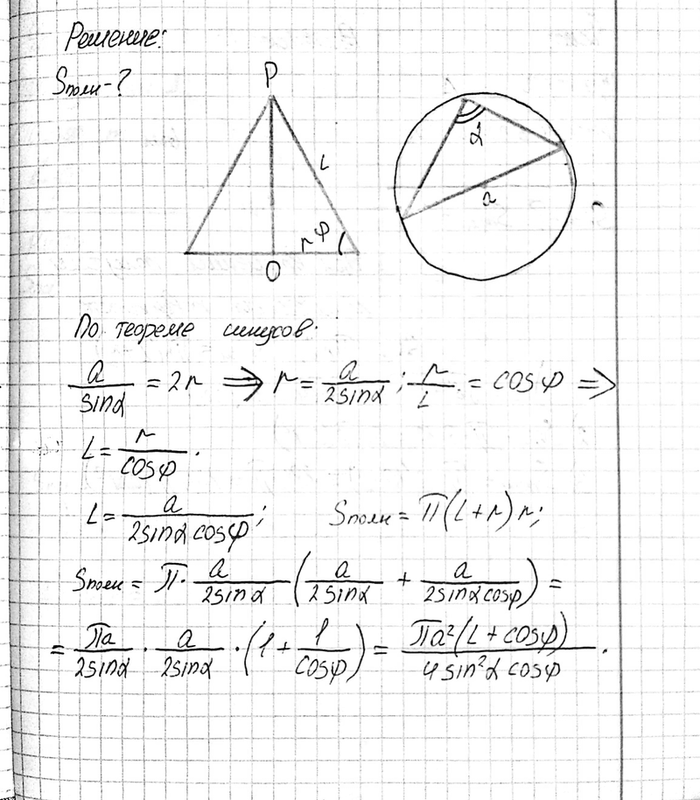 Решение:
Sполн-?
P
L
φ
r
O
α
a
По теореме синусов.
a/sinα = 2r ⟹ r = a/2sinα ; r/L = cosφ ⟹
L = r/cosφ .
L = a/2sinα cosφ ; Sполн = П(L+r)r;
Sполн = П· a/2sinα (a/2sinα + a/2sinα cosφ) =
= Пa/2sinα · a/2sinα · (1 + 1/cosφ) = Пa²(L + cosφ)/4sin²α cosφ .